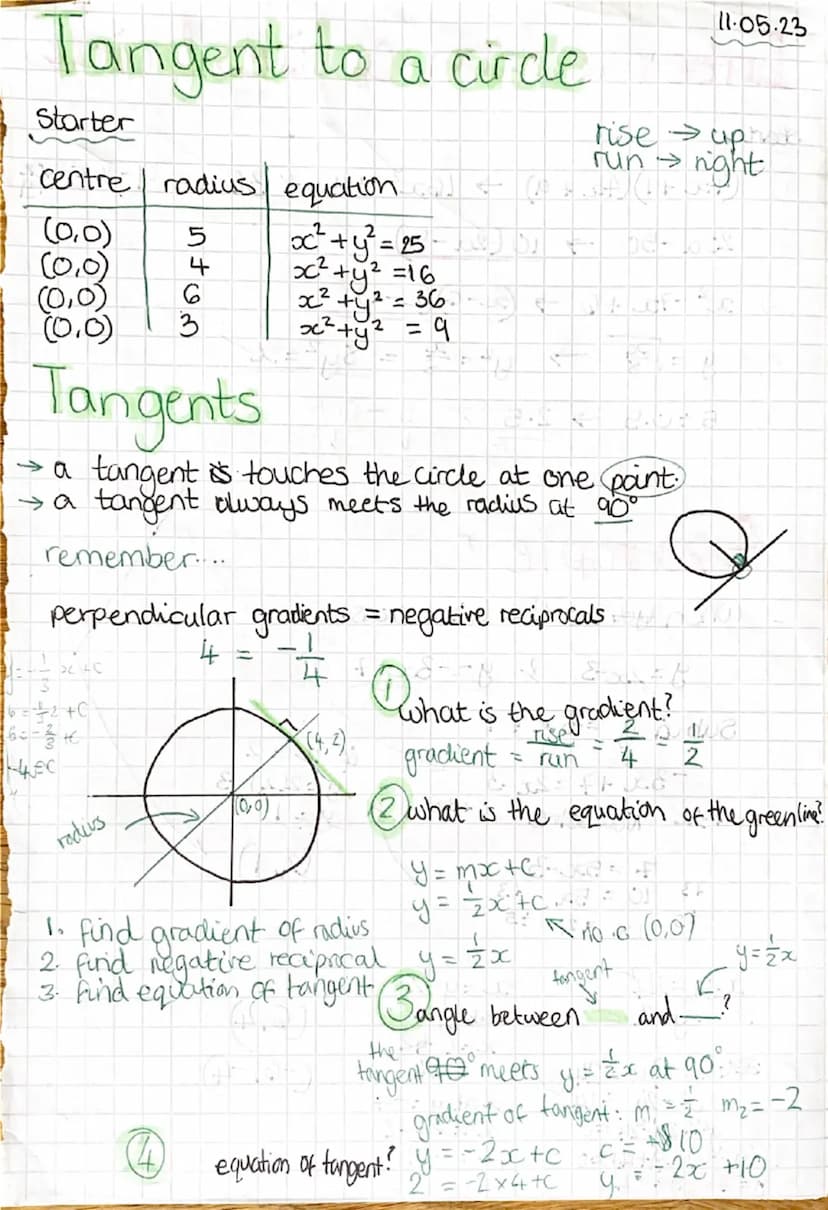 11.05.23
Tangent to a circle
starter
rise → up
run → right
centre | radius | equation
(0,0) 5 x² + y² = 25
(0,0) 4 x² + y² = 16
(0,0) 6 x² + y² = 36
(0,0) 3 x² + y² = 9
Tangents
→ a tangent touches the circle at one point.
→ a tangent always meets the radius at 90°
remember....
perpendicular gradients = negative reciprocals
4 = -1/4
① What is the gradient?
gradient = rise/run = 2/4 = 1/2
(4,2)
(0,0)
radius
② what is the equation of the green line?
y = mx + c
y = 1/2 x + c
no c (0,0)
y = 1/2 x
1. find gradient of radius
2. find negative reciprocal
3. find equation of tangent
tangent
y = 1/2 x
③ angle between and ?
the
tangent meets y = 1/2 x at 90°
gradient of tangent: m, = 1/2 m₂ = -2
④ equation of tangent? y = -2x + c c = 10
2 = -2 × 4 + c y = -2x + 10